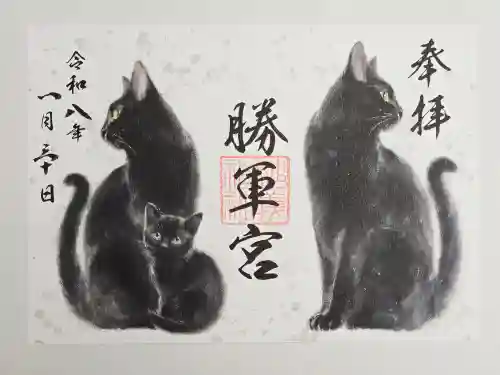 奉拝
勝軍宮
令和八年
月三十日